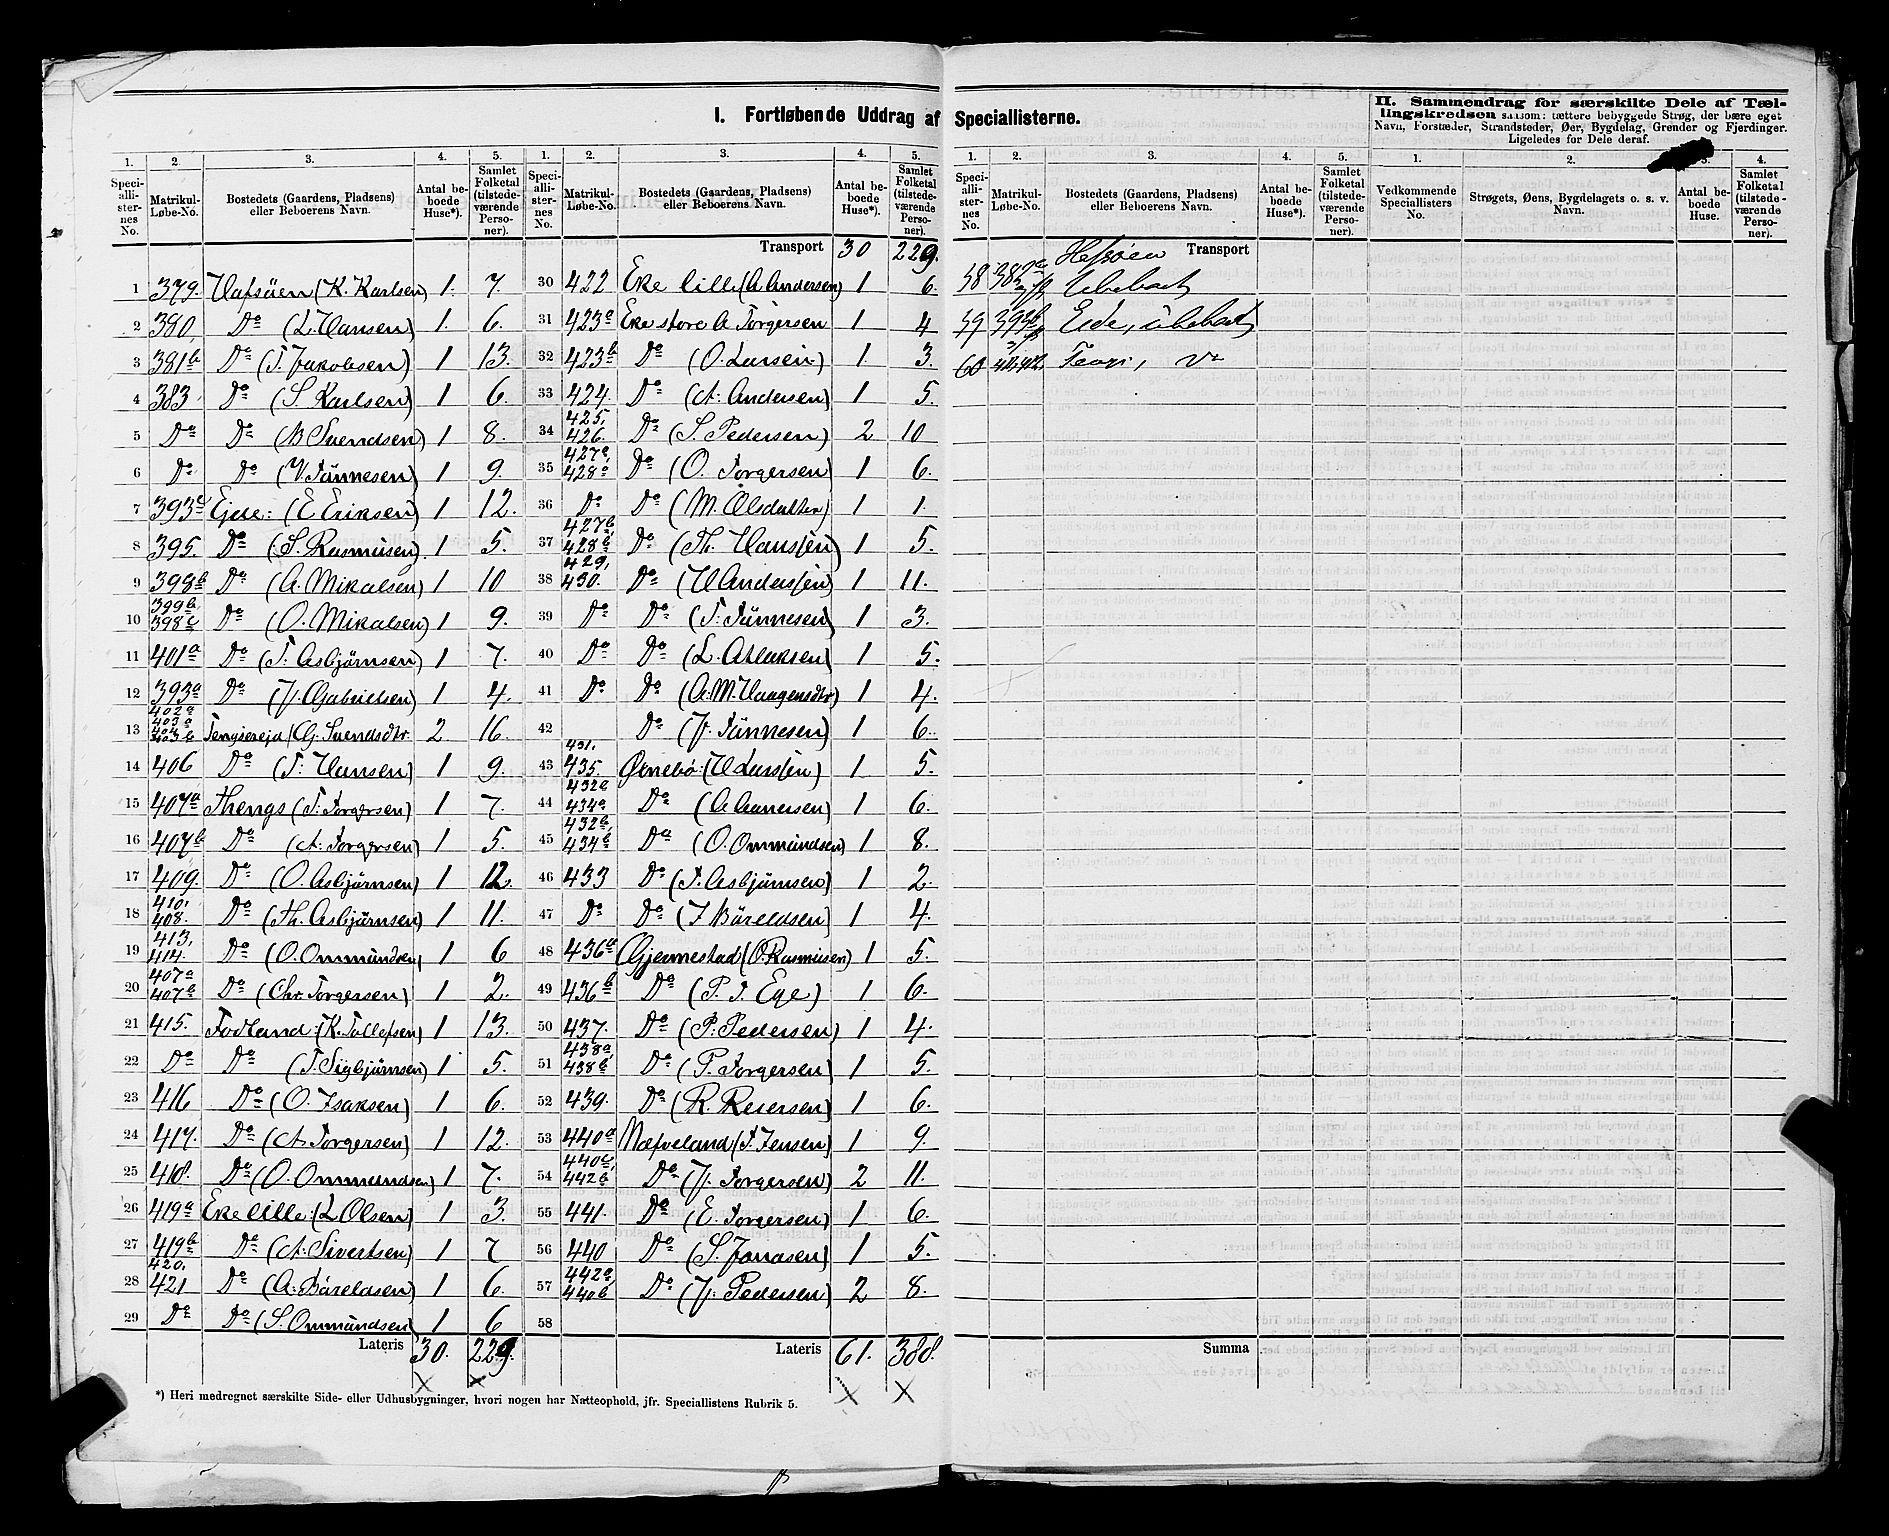 I. Fortløbende Uddrag af Speciallisterne.
II. Sammendrag for særskilte Dele af Tæl-
lingskredsen saasom: tættere bebyggede Strøg, der bære eget
Navn, Forstæder, Strandsteder, Øer, Bygdelag, Grender og Fjerdinger.
Ligeledes for Dele deraf.
1. 2. 3. 4. 5. 1. 2. 3. 4. 5.
Speci-allister-nes No. Matrikul-Løbe-No. Bostedets (Gaardens, Pladsens) eller Beboerens Navn. Antal be-boede Huse*). Samlet Folketal (tilstede-værende Perso-ner).
1 379. Hafsöen (K. Karlsen) 1. 7.
2 380, Do (L. Hansen) 1. 6.
3 381b Do (T. Jakobsen) 1 13.
4 383 Do (S. Karlsen) 1 6.
5 Do Do (B Svendsen) 1 8.
6 Do Do (V. Tönnesen) 1 9.
7 393c Ejee: (E Eriksen) 1 12.
8 395. Do (S. Rasmusen) 1 5.
9 398b Do (A. Mikalsen) 1 10
10 399b, 398c Do (O. Mikalsen) 1 9.
11 401a Do (T. Asbjörnsen) 1 7.
12 393a Do (J. Gabrielsen) 1 4.
13 402a 403a 403b Tengsereid (G. Svendsdtr. 2. 16.
14 406 Do (T. Hansen) 1 9.
15 407a Thengs (T. Torgersen) 1 7.
16 407b Do (A. Torgersen) 1 5.
17 409. Do (O. Asbjörnsen) 1 12.
18 410, 408. Do (Th. Asbjörnsen) 1 11.
19 413, 414. Do (O. Ommundsen) 1 6
20 407a 407b Do (Chr. Torgersen) 1 2.
21 415. Fodland: (K. Tollefsen) 1 13.
22 Do Do (T. Sigbjörnsen) 1 5.
23 416 Do (O. Isaksen) 1 6.
24 417. Do (A. Torgersen) 1 12.
25 418. Do (O. Ommundsen) 1 7.
26 419a Eke lille: (L Olsen) 1 3.
27 419b Do (A. Sivertsen) 1 7
28 420, 421 Do (A. Bäreldsen) 1 6.
29 Do Do (S. Ommundsen) 1 6
Lateris 30. 229.
Transport 30 229.
30 422 Eke lille (A Andersen) 1 6.
31 423a Eke store A Torgersen 1 4
32 423b Do (O. Larsen) 1. 3.
33 424. Do (A. Andersen) 1 5.
34 425, 426. Do (S. Pedersen) 2 10
35 427a, 428a Do (O. Torgersen) 1 6.
36 Do Do (M. Olsdatter) 1 1.
37 427b, 428b Do (Th. Hansen) 1 5.
38 429, 430. Do (H Andersen) 1 11.
39 Do Do (T. Tönnesen) 1 3.
40 Do Do (L. Atlaksen) 1 5.
41 Do Do (A. M. Haagensdtr) 1 4.
42 Do (J. Tönnesen) 1 6.
43 431. 435. Ørnebö: (H Larsen) 1 5.
44 432a 434a Do (A Aanensen) 1 6.
45 432b, 434b Do (O. Ommundsen) 1 8.
46 433 Do (T. Asbjörnsen) 1 2.
47 Do Do (T Bäreldsen) 1 4.
48 436a Gjermestad (O. Rasmusen) 1 5.
49 436b Do (P. T. Ege) 1 6.
50 437. Do (P. Pedersen) 1 4.
51 438a, 438b Do (P. Torgersen) 1 5.
52 439. Do (R. Reiersen) 1 6.
53 440a Mæsveland (T. Jensen) 1 9.
54 440c, 442b Do (J. Torgersen) 2 11.
55 441. Do (E. Torgersen) 1 6.
56 440 Do (S. Jonasen) 1 5.
57 442a, 440b Do (J. Pedersen) 2 8.
58
Lateris 61. 388.
1. 2. 3. 4. 5. 1. 2. 3. 4.
Vedkommende Speciallisters No. Strøgets, Øens, Bygdelagets o. s. v. Navn. Antal be-boede Huse. Samlet Folketal (tilstede-værende Perso-ner).
Transport
58 Ubeboet
59 Eide, ubeboet
60
Summa
*) Heri medregnet særskilte Side- eller Udhusbygninger, hvori nogen har Natteophold, jfr. Speciallistens Rubrik 5.